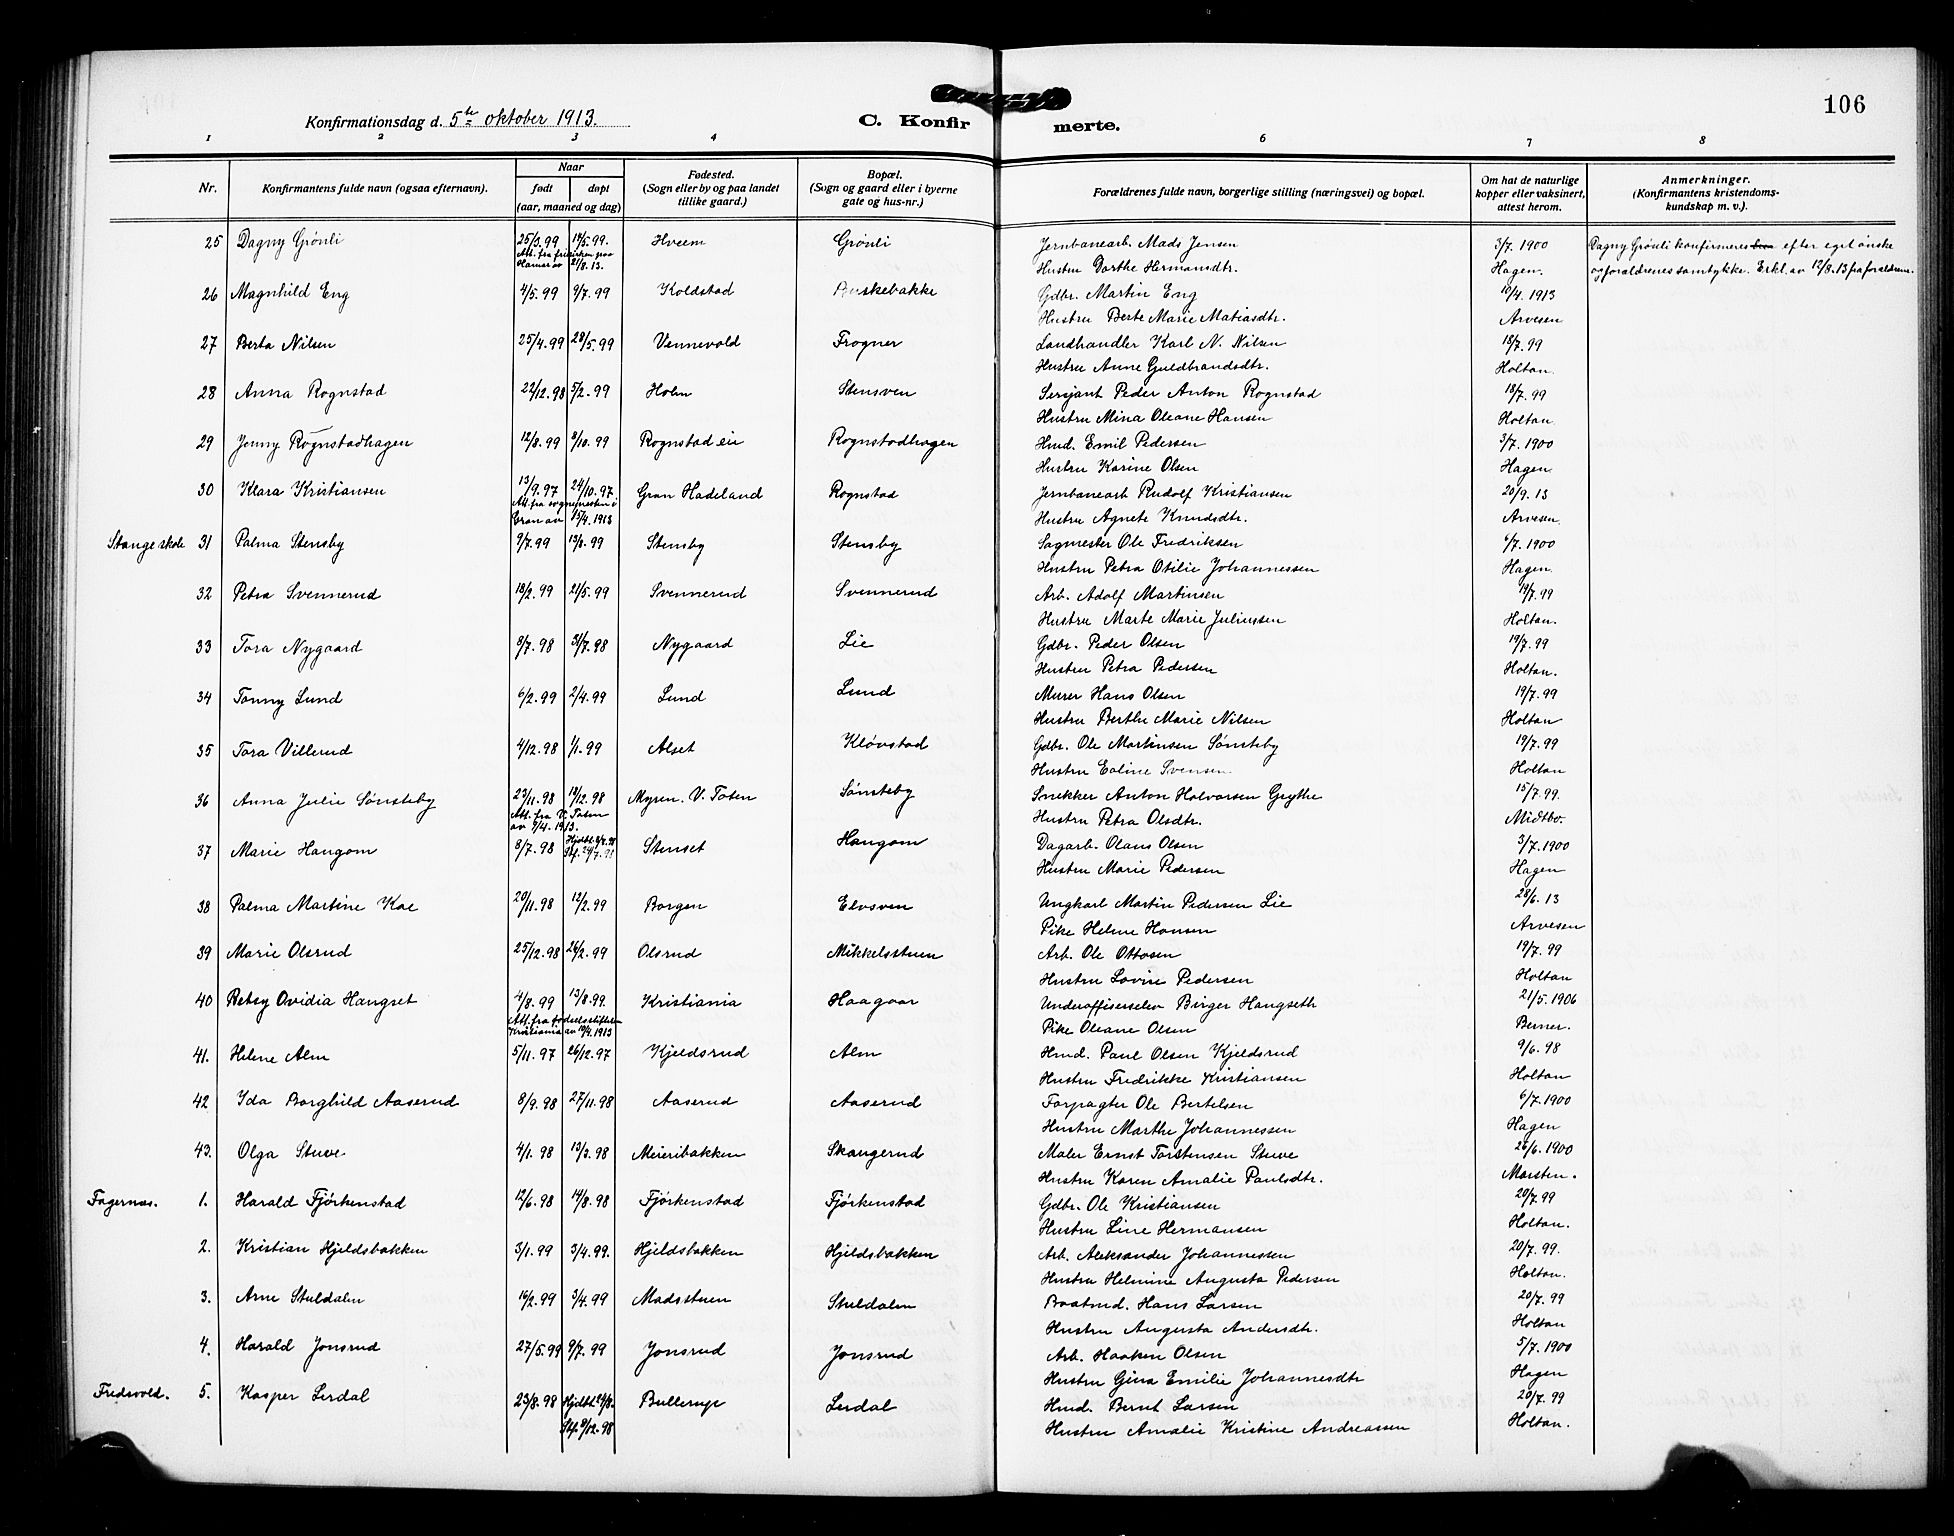 106
Konfirmationsdag d. 5te oktober 1913.
C. Konfirmerte.
1 2 3 4 6 7 8
Nr. Konfirmantens fulde navn (ogsaa efternavn). Naar født døpt (aar, maaned og dag) Fødested. (Sogn eller by og paa landet tillike gaard.) Bopæl. (Sogn og gaard eller i byerne gate og hus-nr.) Forældrenes fulde navn, borgerlige stilling (næringsvei) og bopæl. Om hat de naturlige kopper eller vaksinert, attest herom. Anmerkninger. (Konfirmantens kristendomskundskap m. v.).
25 Dagny Grönli 25/3.99 14/5.99. Hveem Grönli Jernbanearb. Mads Jensen 3/7. 1900 Dagny Grönli konfirmeres efter eget önske
Att. fra frikirken paa Hamar av 21/8.13. Hustru Dorthe Hermansdtr. Hagen. og foraldrenes samtykke. Erkl. av 12/8.13 fra foraldrene.
26 Magnhild Eng 4/5.99 9/7.99 Koldstad Buskebakke Gdbr. Martin Eng 10/4. 1913
Hustru Berte Marie Matiasdtr. Arvesen
27 Berta Nilsen 25/4.99 28/5.99 Vennevold Frogner Landhandler Karl N. Nilsen 18/7.99
Hustru Anne Guldbrandsdtr. Holtan.
28 Anna Rognstad 22/12.98 5/2.99 Holm Stensven Sersjant Peder Anton Rognstad 18/7.99
Hustru Mina Oleane Hansen Holtan.
29 Jenny Rognstadhagen 12/8.99 8/10.99 Rognstad eie Rognstadhagen Hmd. Emil Pedersen 3/7. 1900
Hustru Karine Olsen Hagen.
30 Klara Kristiansen 13/9.97 24/10.97. Gran Hadeland Rognstad Jernbanearb Rudolf Kristiansen 20/9.13
Att. fra sognepresten i Gran av 15/4.1913 Hustru Agnete Knudsdtr. Arvesen.
Stange skole 31 Palma Stensby 9/7.99 13/8.99 Stensby Stensby Sagmester Ole Fredriksen 6/7. 1900
Hustru Petra Otilie Johannessen Hagen.
32 Petra Svennerud 18/2.99 21/5.99 Svennerud Svennerud Arb. Adolf Martinsen 19/7.99
Hustru Marte Marie Juliussen Holtan.
33 Tora Nygaard 8/7.98 31/7.98 Nygaard Lie Gdbr. Peder Olsen 19/7.99
Hustru Petra Pedersen Holtan.
34 Tonny Lund 6/2.99 2/4.99 Lund Lund Murer Hans Olsen 19/7.99
Hustru Berthe Marie Nilsen Holtan
35 Tora Villerud 4/12.98 1/1.99 Alset Klövstad Gdbr. Ole Martinsen Sönsteby 19/7.99
Hustru Eoline Svensen. Holtan
36 Anna Julie Sönsteby 23/11.98 18/12.98 Myren. V. Toten Sönsteby Snekker Anton Halvorsen Grythe 15/7.99.
Att. fra V. Toten av 9/4.1913. Hustru Petra Olsdtr. Midtbo.
37 Marie Haugom 8/7.98 Stenset Haugom Dagarb. Olaus Olsen 3/7.1900
Hustru Marie Pedersen Hagen
38 Palma Martine Koe 20/11.98 12/2.99 Borgen Elvsven Ungkarl Martin Pedersen Lie 28/6.13
Pike Helene Hansen Arvesen
39 Marie Olsrud 25/12.98 26/2.99 Olsrud Mikkelsstuen Arb. Ole Ottosen 19/7.99
Hustru Lovise Pedersen Holtan
40 Betsy Ovidia Hangset 4/8.99 13/8.99. Kristiania Haagaar Underoffiserselev Birger Hangseth 21/5.1906
Att. fra fodselsstiftelsen Kristiania av 19/4.1913 Pike Oleane Olsen Berner.
41. Helene Alm 5/11.97 26/12.97 Kjeldsrud Alm Hmd. Paul Olsen Kjeldsrud 9/6.98
Hustru Fredrikke Kristiansen Holtan
42 Ida Borghild Aaserud 8/9.98 27/11.98 Aaserud Aaserud Forpagter Ole Bertelsen 6/7.1900
Hustru Marthe Johannessen Hagen
43. Olga Stuve 4/1.98 13/3.98 Meieribakken Skaugerud Maler Ernst Torstensen Stuve 26/6.1900
Hustru Karen Amalie Paulsdtr. Marsten.
Fagernes. 1. Harald Fjörkenstad 12/6.98 14/8.98 Fjörkenstad Fjörkenstad Gdbr. Ole Kristiansen 20/7.99
Hustru Line Hermansen Holtan.
2. Kristian Hjeldsbakken 3/1.99 3/4.99. Hjeldsbakken Hjeldsbakken Arb. Aleksander Johannessen 20/7.99.
Hustru Helmine Augusta Pedersen Holtan.
3. Arne Stuldalen 16/2.99 3/4.99 Madsstuen Stuldalen Baatmd. Hans Larsen 20/7.99
Hustru Augusta Andersdtr. Holtan
4. Harald Jonsrud 27/5.99 9/7.99 Jonsrud Jonsrud Arb. Haaken Olsen 5/7.1900
Hustru Gina Emilie Johannesdtr Hagen
Fredsvold. 5. Kasper Lerdal 23/8.98 Hjdbt. 24/8. Bullerup Lerdal Hmd. Bernt Larsen 20/7.99
Stf. 9/12.98 Hustru Amalie Kristine Andreassen Holtan.